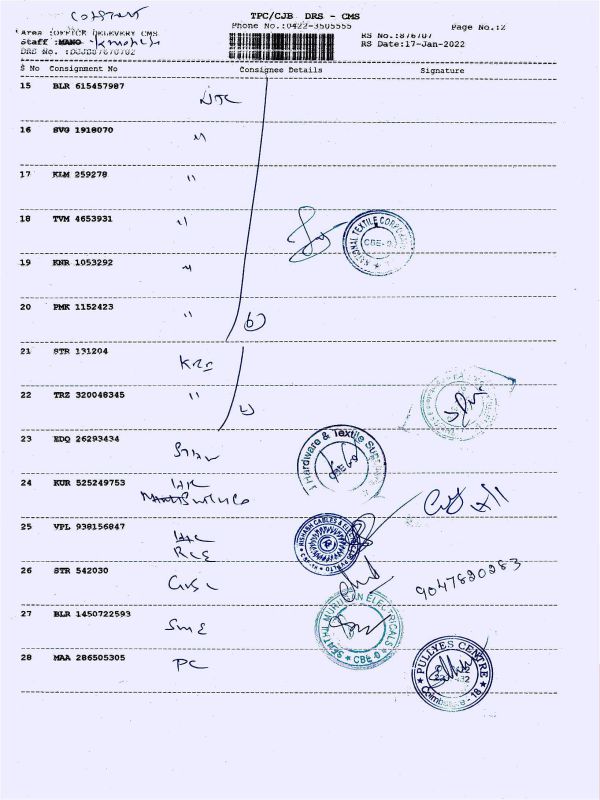 TPC/CJB DRS - CMS
Phone No.:0422-3505555
Page No.:2
Area :OFFICE DELEVERY CMS
Staff :MANO
RS No.:876707
RS Date:17-Jan-2022
S No Consignment No Consignee Details Signature
15 BLR 615457987
NTC
16 SVG 1918070 "
17 KLM 259278 "
18 TVM 4653931 "
NATIONAL TEXTILE CORPORATION
CBE-9
19 KNR 1053292 "
20 PMK 1152423 "
6
21 STR 131204
22 TRZ 320048345 "
23 EDQ 26293434
Hardware & Textile
24 KUR 525249753
25 VPL 938156847
RISHABH CABLES &
26 STR 542030
9047820283
27 BLR 1450722593
SME
SENTHIL MURUGAN ELECTRICALS
* CBE *
28 MAA 286505305
PC
PULLYES CENTRE
Coimbatore - 18